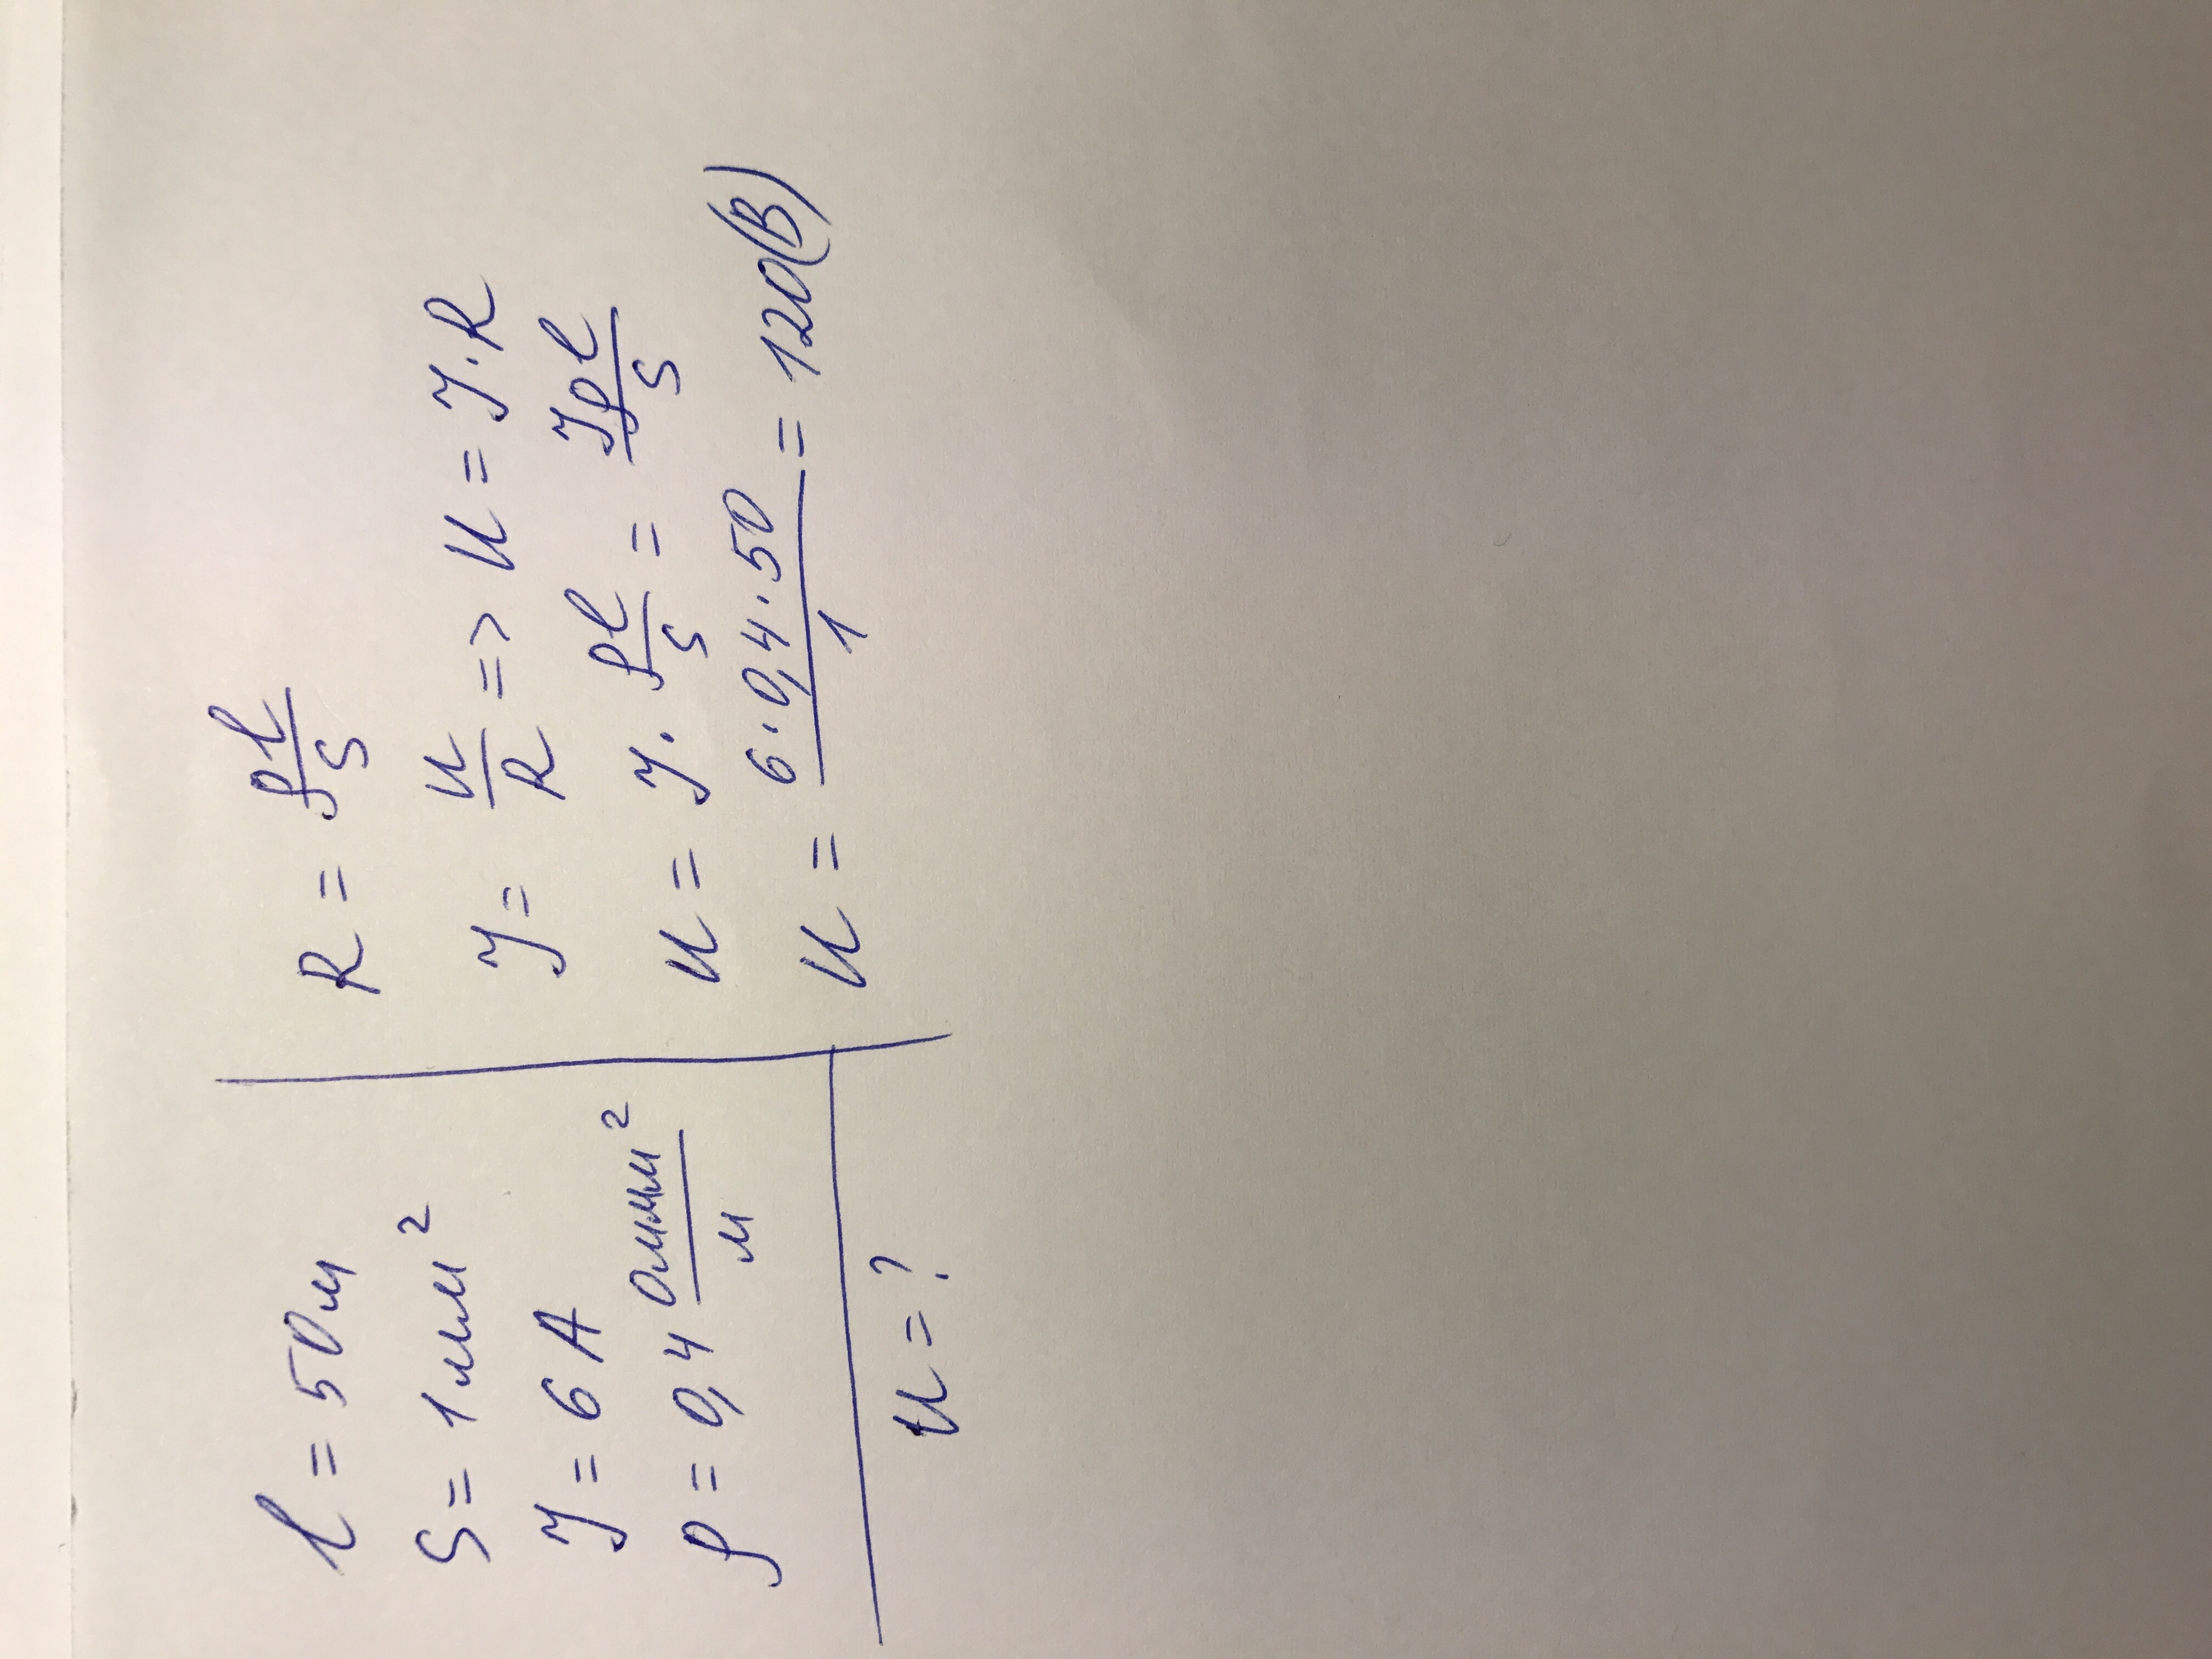 l = 50м
S = 1мм²
I = 6 А
ρ = 0,4 Ом·мм²/м
U = ?
R = ρl/S
I = U/R => U = I·R
U = I · ρl/S = Iρl/S
U = 6·0,4·50/1 = 120(В)